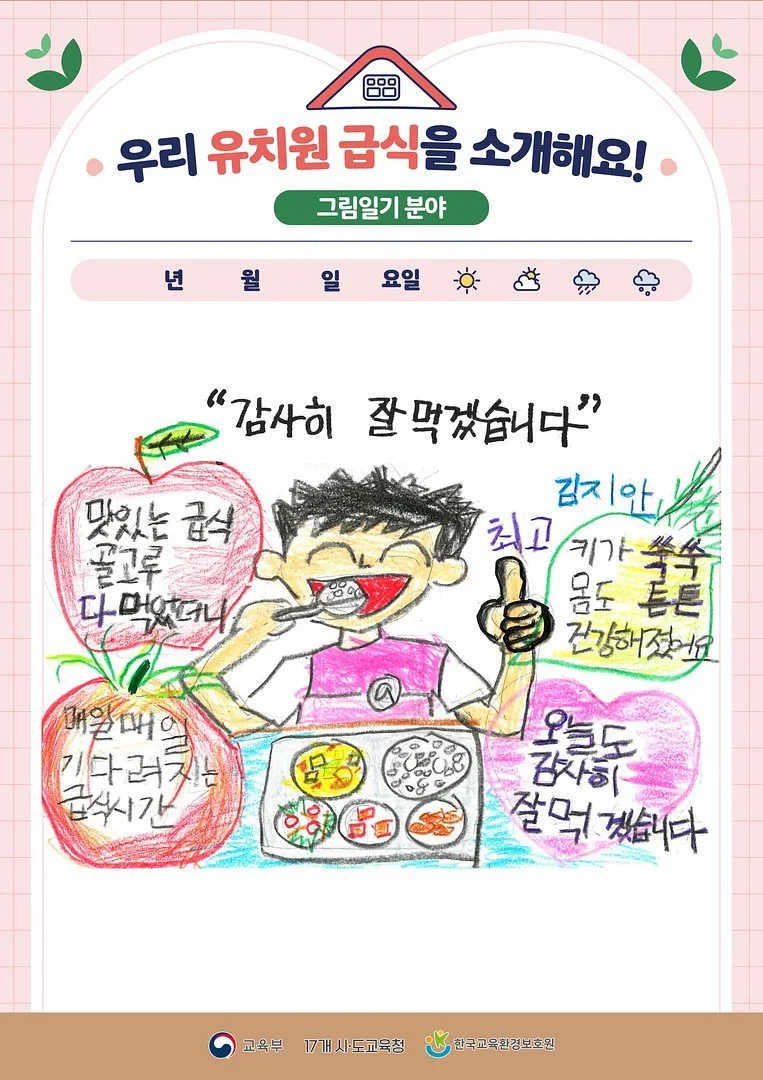 우리 유치원 급식을 소개해요!
그림일기 분야
년 월 일 요일
“감사히 잘 먹겠습니다”
맛있는 급식
골고루
다 먹었더니
최고
김지안
키가 쑥쑥
몸도 튼튼
건강해졌어요
매일매일
기다려지는
급식시간
오늘도
감사히
잘 먹겠습니다
교육부 17개 시·도교육청 한국교육환경보호원